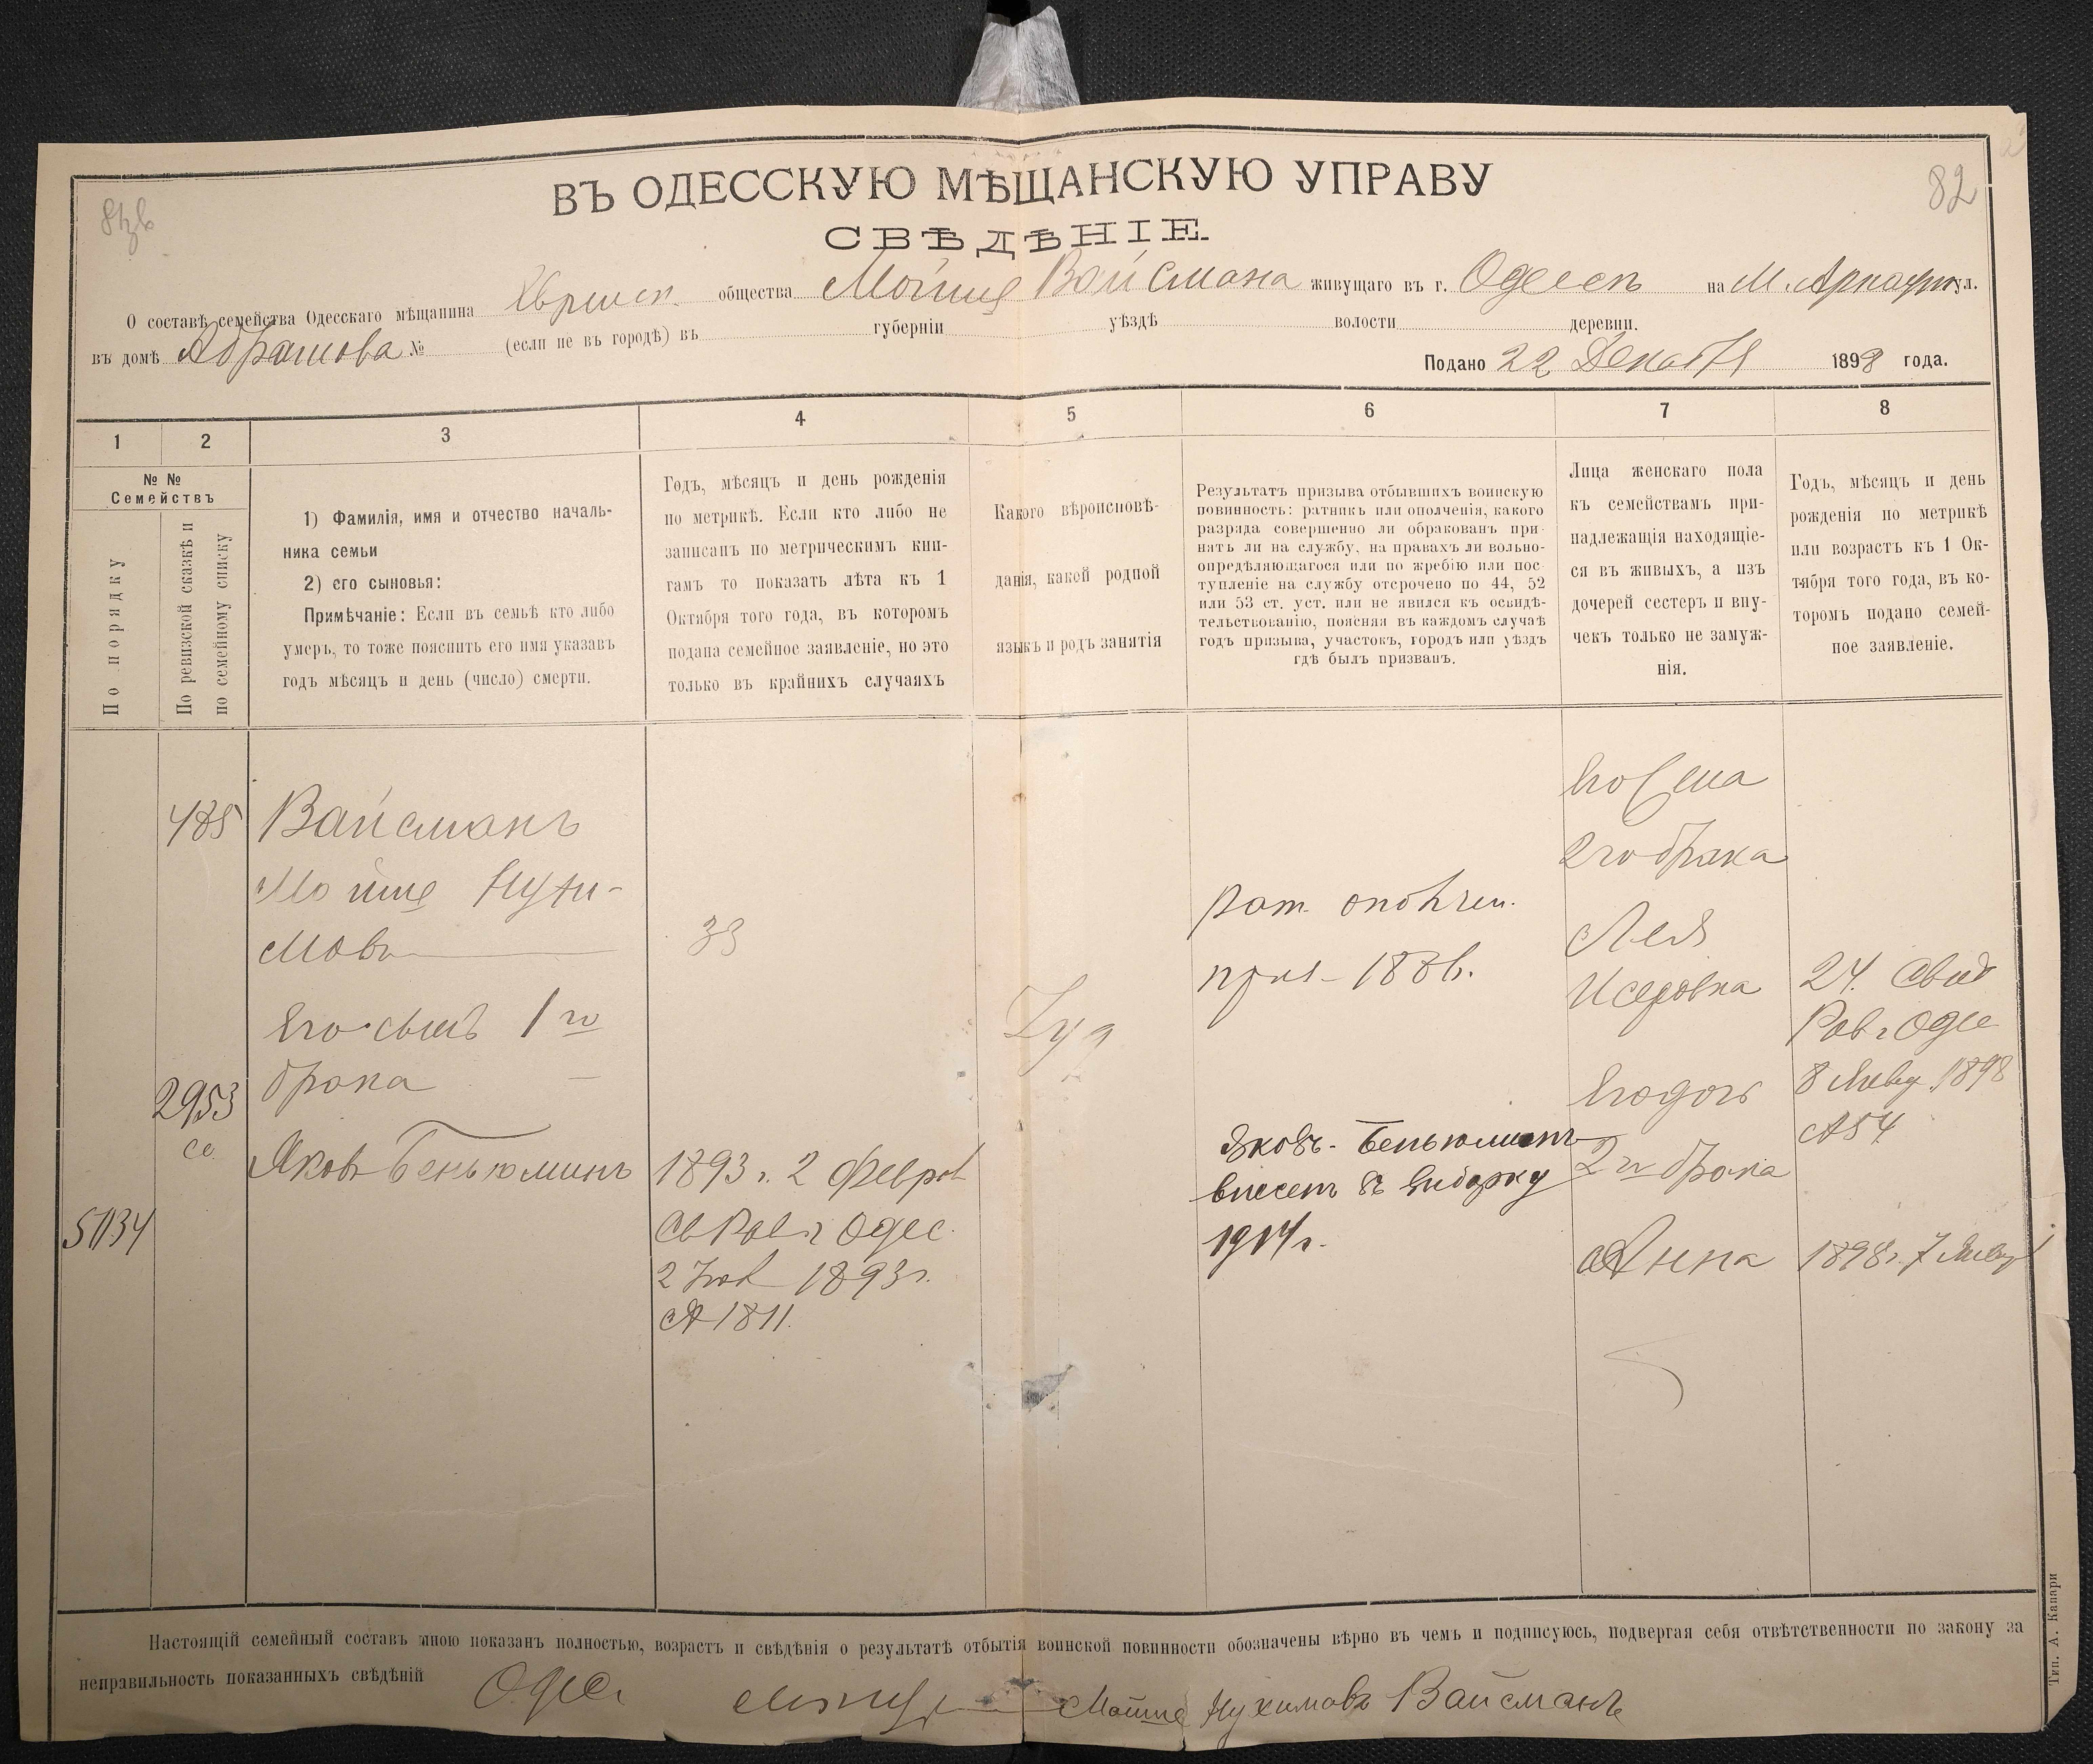 82
ВЪ ОДЕССКУЮ МѢЩАНСКУЮ УПРАВУ
СВѢДѢНІЕ
О составѣ семейства Одесскаго мѣщанина общества Мойше Вайсмана живущаго въ г. Одессѣ на М. Арнаутул.
въ домѣ Абрашова № (если не въ городѣ) въ губерніи уѣздѣ волости деревни.
Подано 22 Декабря 1898 года.
1 2 3 4 5 6 7 8
№ №
Семействъ
По порядку
По ревизской сказкѣ и
по семейному списку
1) Фамилія, имя и отчество началь-
ника семьи
2) его сыновья:
Примѣчаніе: Если въ семьѣ кто либо
умеръ, то тоже пояснить его имя указавъ
годъ мѣсяцъ и день (число) смерти.
Годъ, мѣсяцъ и день рожденія
по метрикѣ. Если кто либо не
записанъ по метрическимъ кни-
гамъ то показать лѣта къ 1
Октября того года, въ которомъ
подана семейное заявленіе, но это
только въ крайнихъ случаяхъ
Какого вѣроисповѣ-
данія, какой родной
языкъ и родъ занятія
Результатъ призыва отбывшихъ воинскую
повинность: ратникъ или ополченія, какого
разряда совершенно ли обракованъ при-
нятъ ли на службу, на правахъ ли вольно-
опредѣляющагося или по жребію или пос-
тупленіе на службу отсрочено по 44, 52
или 53 ст. уст. или не явился къ освидѣ-
тельствованію, поясняя въ каждомъ случаѣ
годъ призыва, участокъ, городъ или уѣздъ
гдѣ былъ призванъ.
Лица женскаго пола
къ семействамъ при-
надлежащія находящіе-
ся въ живыхъ, а изъ
дочерей сестеръ и вну-
чекъ только не замуж-
нія.
Годъ, мѣсяцъ и день
рожденія по метрикѣ
или возрастъ къ 1 Ок-
тября того года, въ ко-
торомъ подано семей-
ное заявленіе.
485
Вайсманъ
Мойше Нухи-
мовъ
33
Его сынъ 1го
брака
2953
се
Яковъ Беньюминъ
5134
1893 г. 2 Февр
Св Рав г Одес.
2 1893 г.
№ 1811.
Рат. ополчен.
1886.
Яковъ-Беньюминъ
внесенъ въ
1914 г.
Его жена
2го брака
Лея
Исеровна
Его дочь
2го брака
Анна
24. Свид
Рав г Одес
8 Янва 1898
№ 54
1898 г. 7 Январ
Настоящій семейный составъ мною показанъ полностью, возрастъ и свѣдѣнія о результатѣ отбытія воинской повинности обозначены вѣрно въ чемъ и подписуюсь, подвергая себя отвѣтственности по закону за
неправильность показанныхъ свѣдѣній Одес. Мойше Нухимовъ Вайсманъ
Тип. А. Капари